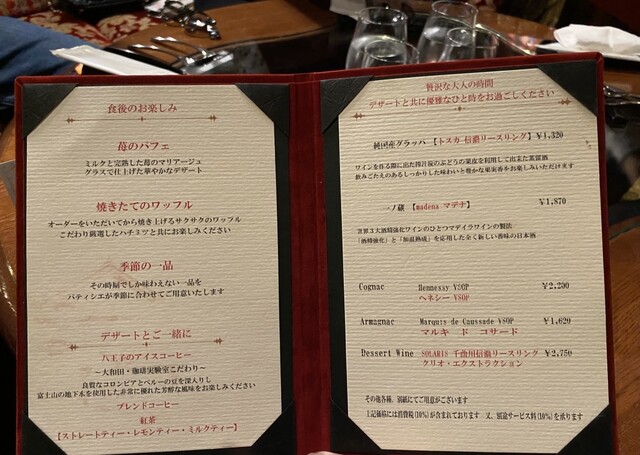 食後のお楽しみ
苺のパフェ
ミルクと完熟した苺のマリアージュ
グラスで仕上げた華やかなデザート
焼きたてのワッフル
オーダーをいただいてから焼き上げるサクサクのワッフル
こだわり厳選したハチミツと共にお楽しみください
季節の一品
その時期でしか味わえない一品を
パティシエが季節に合わせてご用意いたします
デザートとご一緒に
八王子のアイスコーヒー
～大和田・珈琲実験室こだわり～
良質なコロンビアとペルーの豆を深入りし
富士山の地下水を使用した非常に優れた芳醇な風味をお楽しみください
ブレンドコーヒー
紅茶
【ストレートティー・レモンティー・ミルクティー】
贅沢な大人の時間
デザートと共に優雅なひと時をお過ごしください
純国産グラッパ 【トスカ 信濃リースリング】 ¥1,320
ワインを作る際に出た搾汁後のぶどうの果皮を利用して出来た蒸留酒
飲みごたえのあるしっかりした味わいと豊かな果実香をお楽しみいただけます
一ノ蔵 【madena マデナ】 ¥1,870
世界3大酒精強化ワインのひとつマデイラワインの製法
「酒精強化」と「加温熟成」を応用した全く新しい香味の日本酒
Cognac Hennessy VSOP ¥2,200
ヘネシー VSOP
Armagnac Marquis de Caussade VSOP ¥1,620
マルキ ド コサード
Dessert Wine SOLARIS 千曲川信濃リースリング ¥2,750
クリオ・エクストラクション
その他各種、別紙にてご用意がございます
上記価格には消費税(10%)が含まれております 又、別途サービス料(10%)を承ります